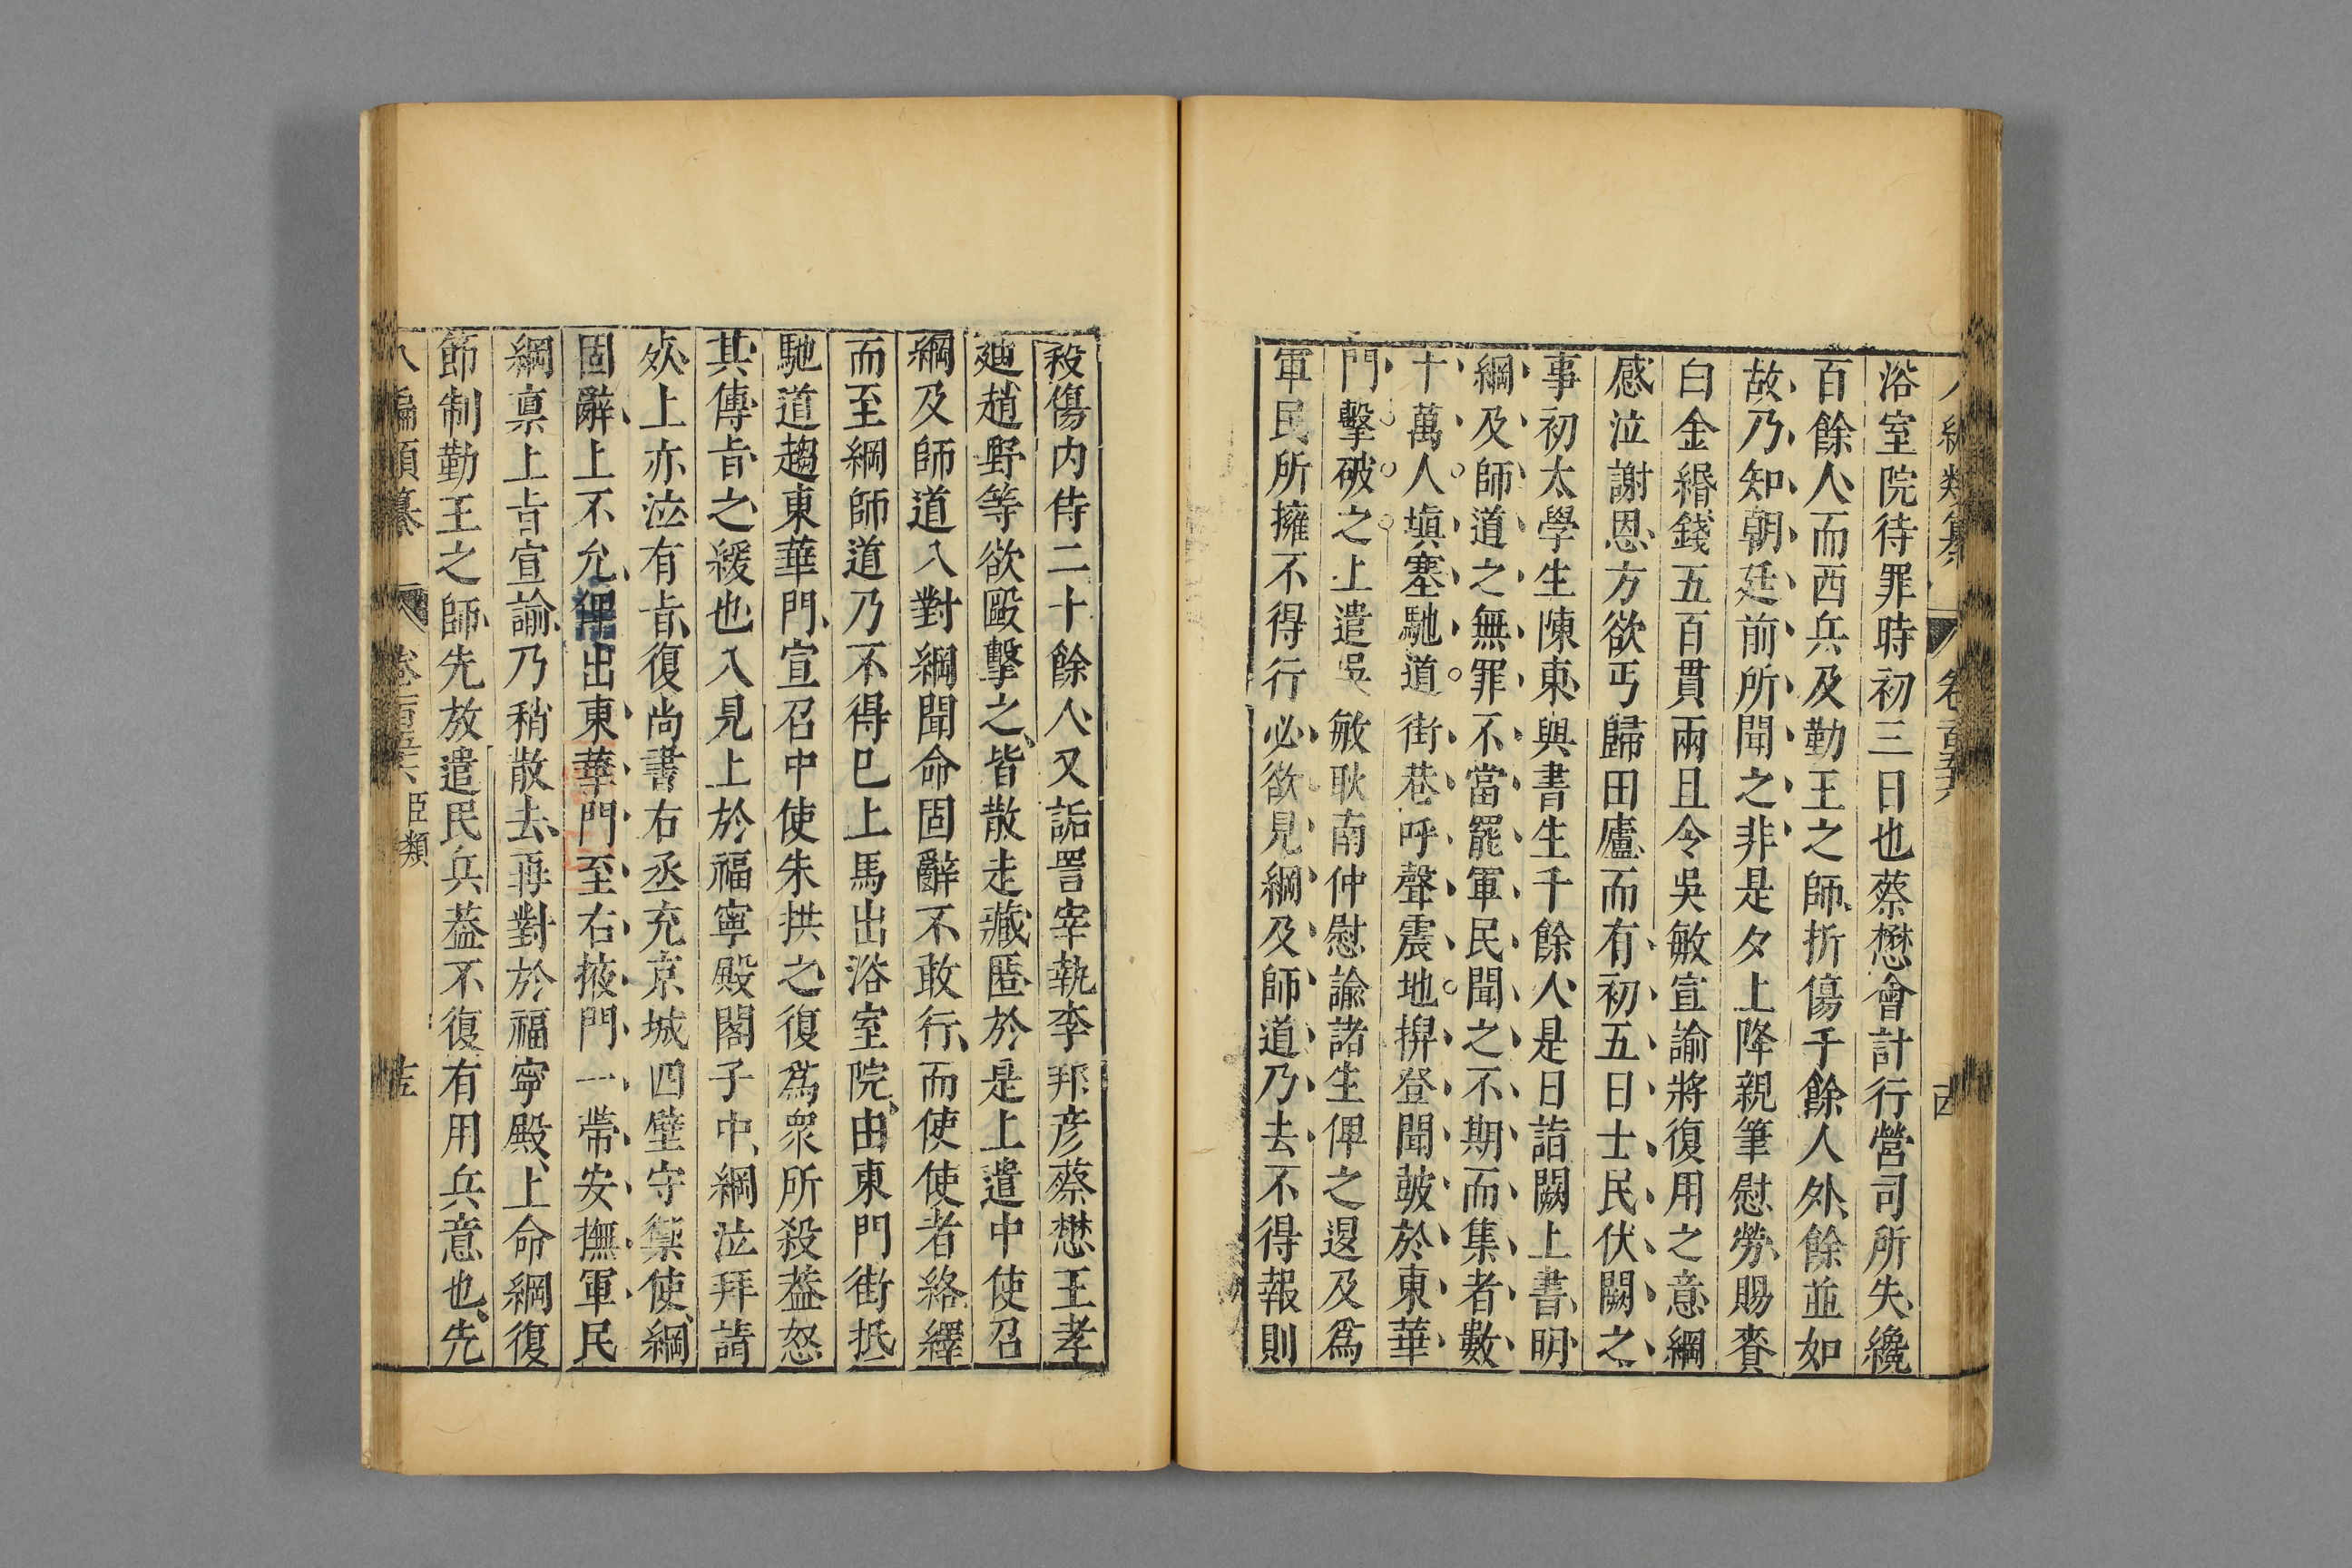 浴室院待罪時初三日也蔡懋會計行營司所失纔
百餘人而西兵及勤王之師折傷千餘人外餘並如
故乃知朝廷前所聞之非是夕上降親筆慰勞賜賚
白金緡錢五百貫兩且令吳敏宣諭將復用之意綱
感泣謝恩方欲丐歸田廬而有初五日士民伏闕之
事初太學生陳東與書生千餘人是日詣闕上書明
綱及師道之無罪不當罷軍民聞之不期而集者數
十萬人塡塞馳道街巷呼聲震地搿登聞皷於東華
門擊破之上遣吳敏耿南仲慰諭諸生俾之退及爲
軍民所擁不得行必欲見綱及師道乃去不得報則
殺傷内侍二十餘人又詬詈宰執李邦彦蔡懋王孝
廸趙野等欲毆擊之皆散走藏匿於是上遣中使召
綱及師道入對綱聞命固辭不敢行而使使者絡繹
而至綱師道乃不得巳上馬出浴室院由東門街抵
馳道趨東華門宣召中使朱拱之復爲衆所殺葢怒
其傳旨之緩也入見上於福寧殿閣子中綱泣拜請
死上亦泣有旨復尚書右丞充京城四壁守禦使綱
固辭上不允俾出東華門至右掖門一帶安撫軍民
綱禀上旨宣諭乃稍散去再對於福寧殿上命綱復
節制勤王之師先放遣民兵葢不復有用兵意也先
八編類纂 卷百五十六 臣類